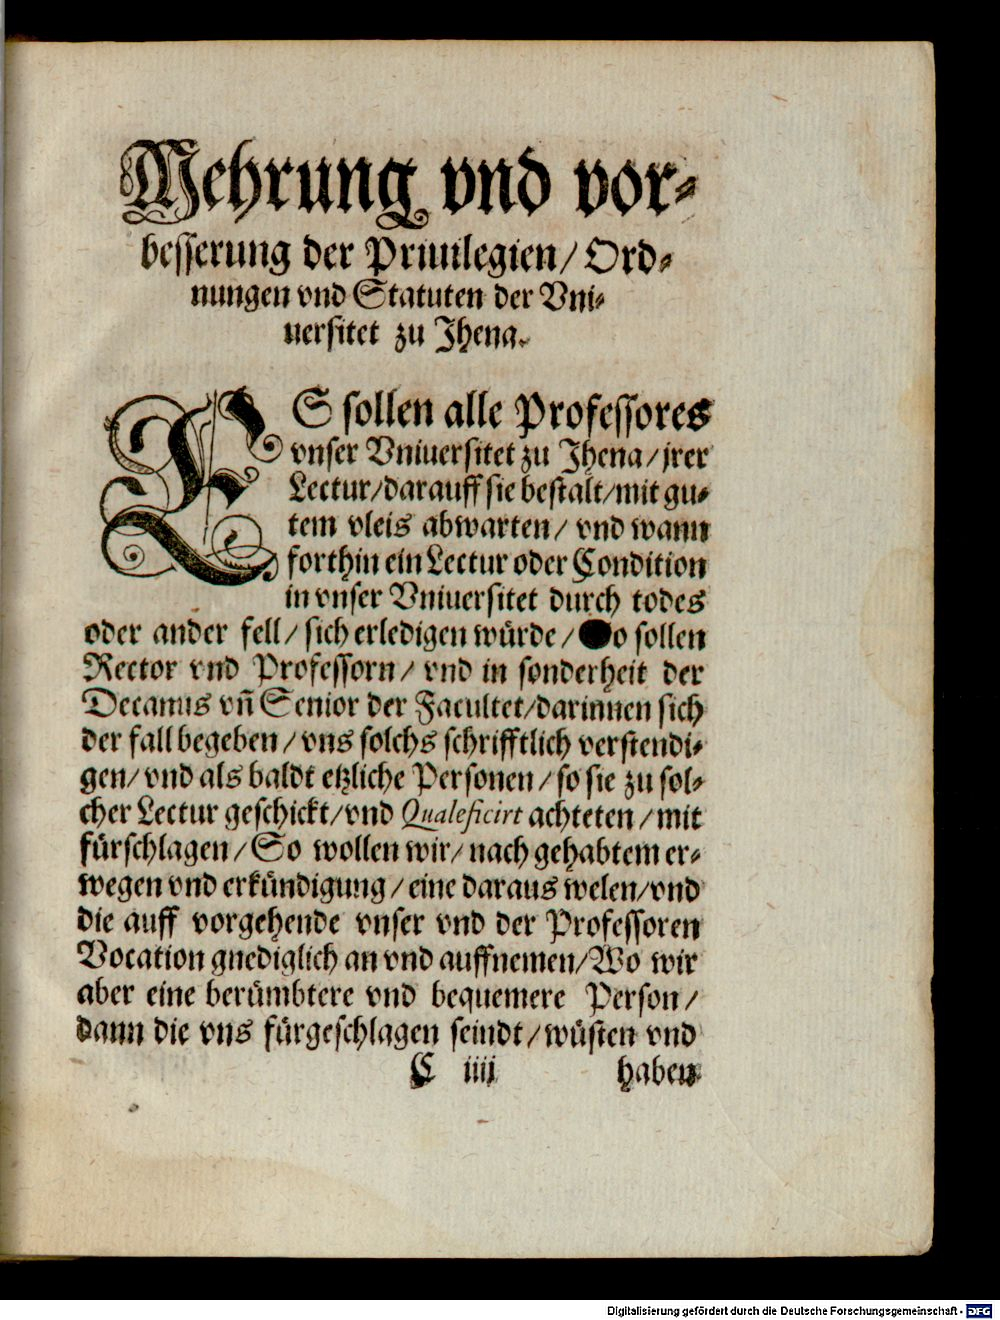 Mehrung vnd vor-
besserung der Priuilegien/ Ord-
nungen vnd Statuten der Vni-
uersitet zu Jhena.
ES sollen alle Professores
vnser Vniuersitet zu Jhena/ jrer
Lectur/ darauff sie bestalt/ mit gu-
tem vleis abwarten/ vnd wann
forthin ein Lectur oder Condition
in vnser Vniuersitet durch todes
oder ander fell/ sich erledigen würde/ So sollen
Rector vnd Professorn/ vnd in sonderheit der
Decanus vñ Senior der Facultet/ darinnen sich
der fall begeben/ vns solchs schrifftlich verstendi-
gen/ vnd als baldt etzliche Personen/ so sie zu sol-
cher Lectur geschickt/ vnd Qualeficirt achteten/ mit
fürschlagen/ So wollen wir/ nach gehabtem er-
wegen vnd erkündigung/ eine daraus welen/ vnd
die auff vorgehende vnser vnd der Professoren
Vocation gnediglich an vnd auffnemen/ Wo wir
aber eine berümbtere vnd bequemere Person/
dann die vns fürgeschlagen seindt/ wüsten vnd
C iiij haben
Digitalisierung gefördert durch die Deutsche Forschungsgemeinschaft - DFG